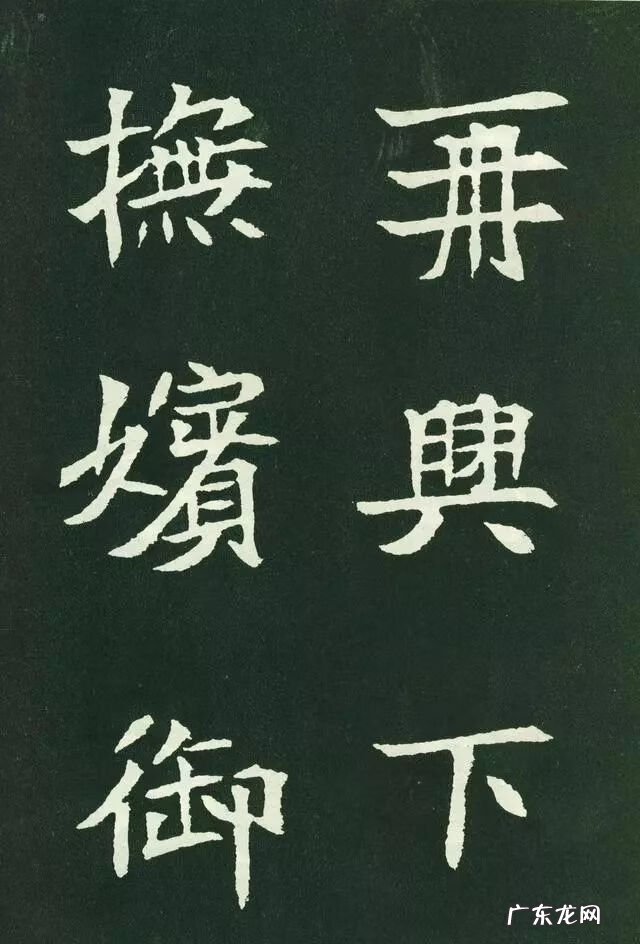 再興下
撫嬪御
广东龙网